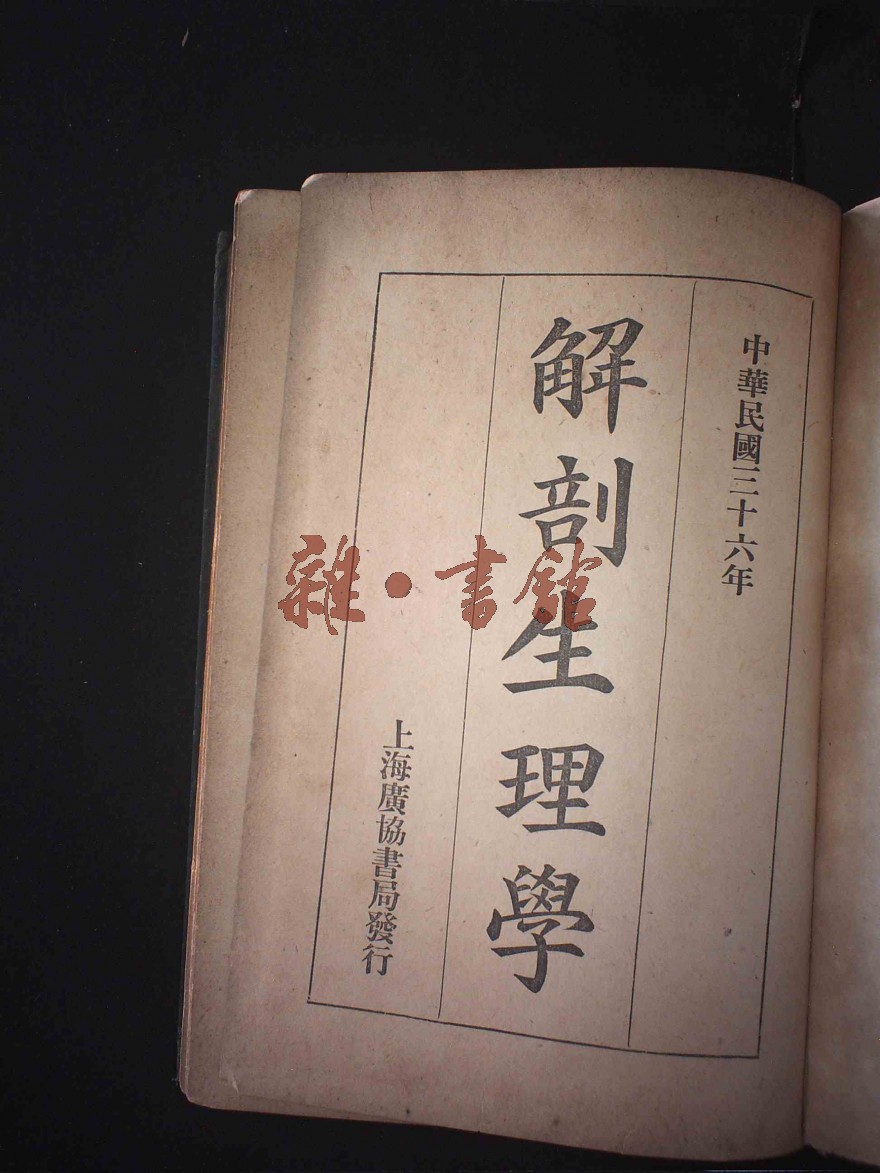 中華民國三十六年
解剖生理學
上海廣協書局發行
雜·書館